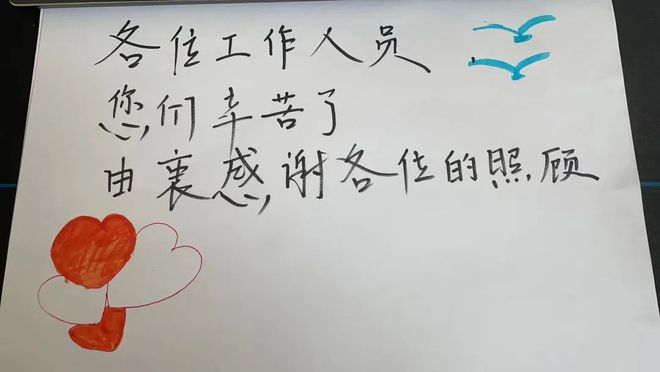 各位工作人员
您们辛苦了
由衷感谢各位的照顾